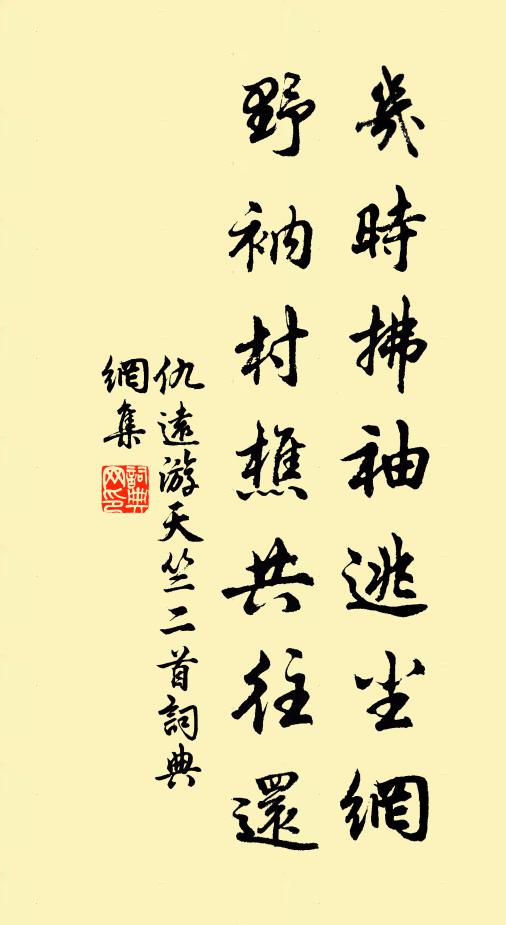 幾時拂袖逃尘網
野衲村樵共往還
仇遠游天竺二首詞典
網集
詞典
网印